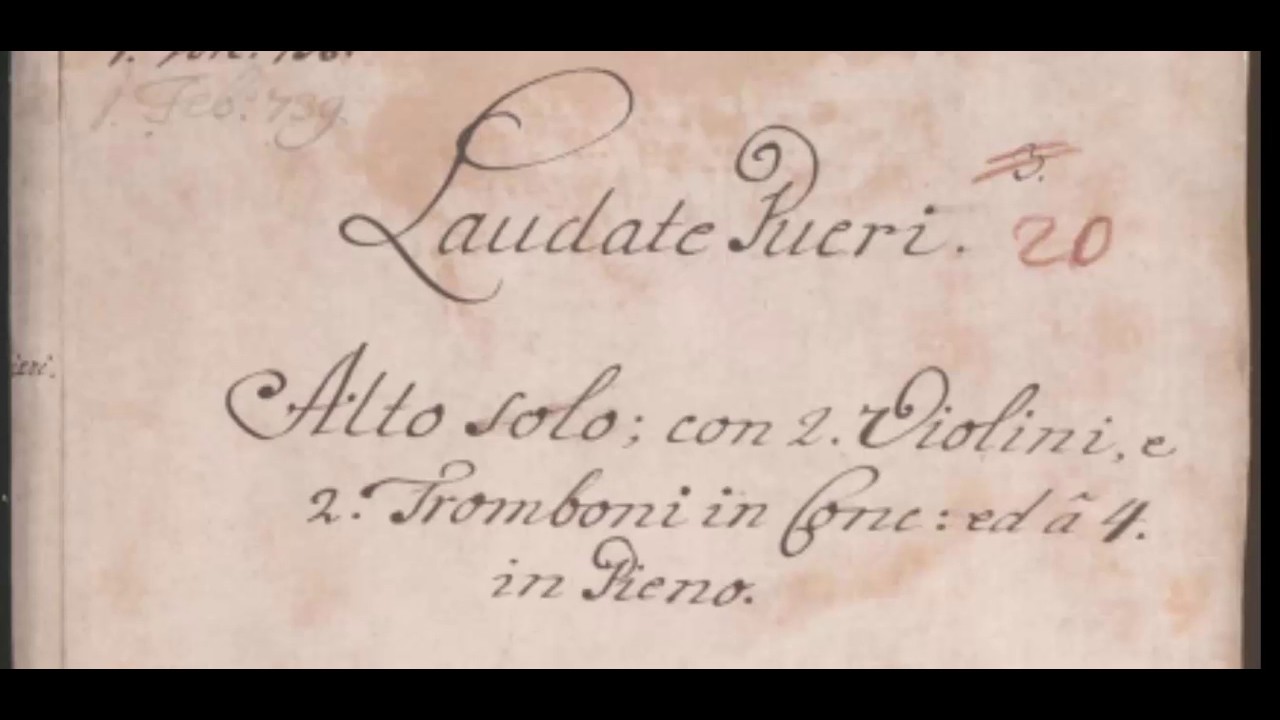 1. Feb: 739
Laudate Pueri. 20
Alto solo; con 2. Violini, e
2. Tromboni in Conc: ed â 4.
in Pieno.